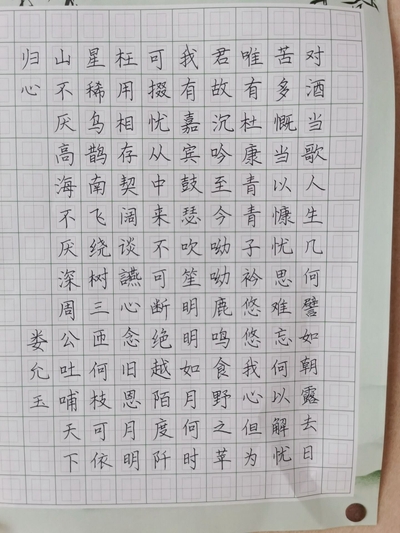 对酒当歌人生几何譬如朝露去日
苦多慨当以慷忧思难忘何以解忧
唯有杜康青青子衿悠悠我心但为
君故沉吟至今呦呦鹿鸣食野之苹
我有嘉宾鼓瑟吹笙明明如月何时
可掇忧从中来不可断绝越陌度阡
枉用相存契阔谈讌心念旧恩月明
星稀乌鹊南飞绕树三匝何枝可依
山不厌高海不厌深周公吐哺天下
归心
娄允玉